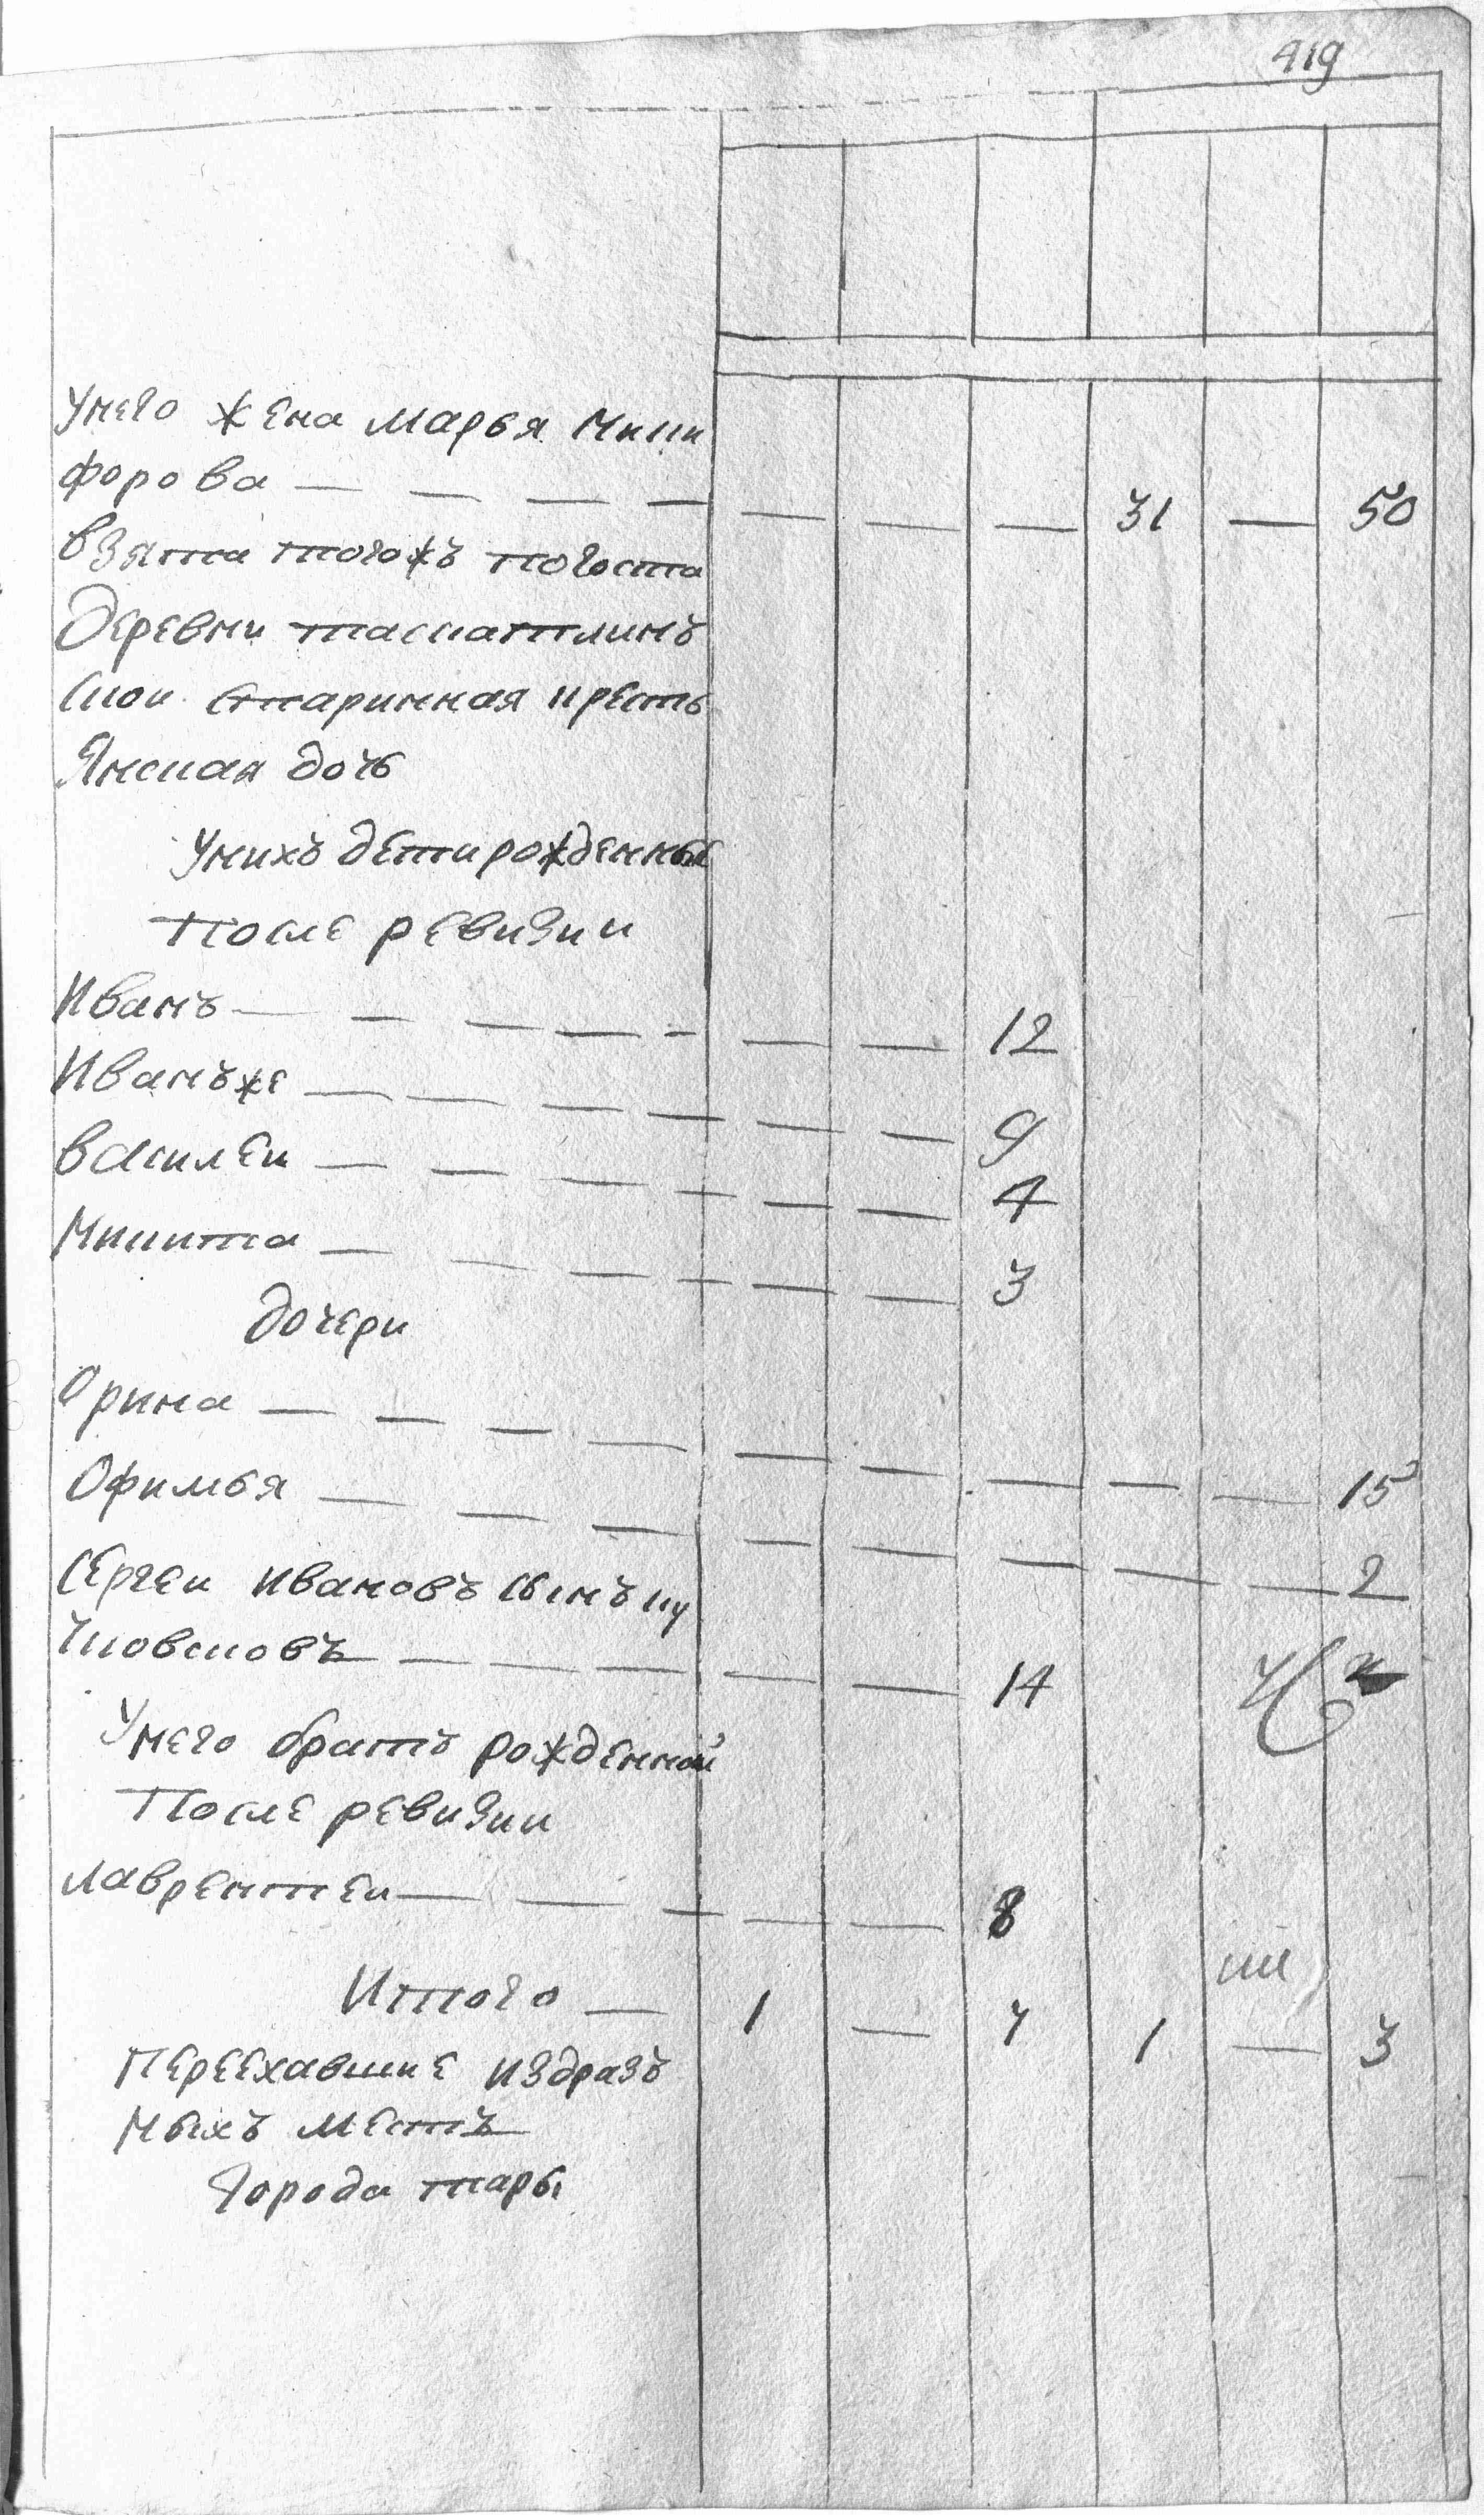 419
Унего жена марья Ники
форова — — — — — — — 31 — 50
взята тогожъ погоста
деревни таскатлинъ
скои старинная кресть
янская дочь
Унихъ дети рожденные
После ревизии
Иванъ — — — — — — — 12
Иванъже — — — — — — 9
василеи — — — — — — 4
Никита — — — — — — 3
дочери
Орина — — — — — — — — — 15
Офимья — — — — — — — — 2
Сергеи ивановъ сынъ ку
чковсковъ — — — — — 14
Унего братъ рожденной
После ревизии
лаврентеи — — — — — 8
Итого — 1 — 7 1 — 3
Переехавшие изъдразъ
ныхъ местъ
Города тары